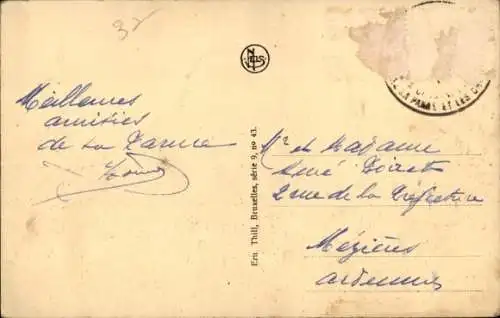 32
NELS
Meilleures
amitiés
de La Panne
Ern. Thill, Bruxelles, série 9, nº 43.
LA PANNE ET LES
Mr et Madame
René
2 rue de la Préfecture
Mézières
Ardennes